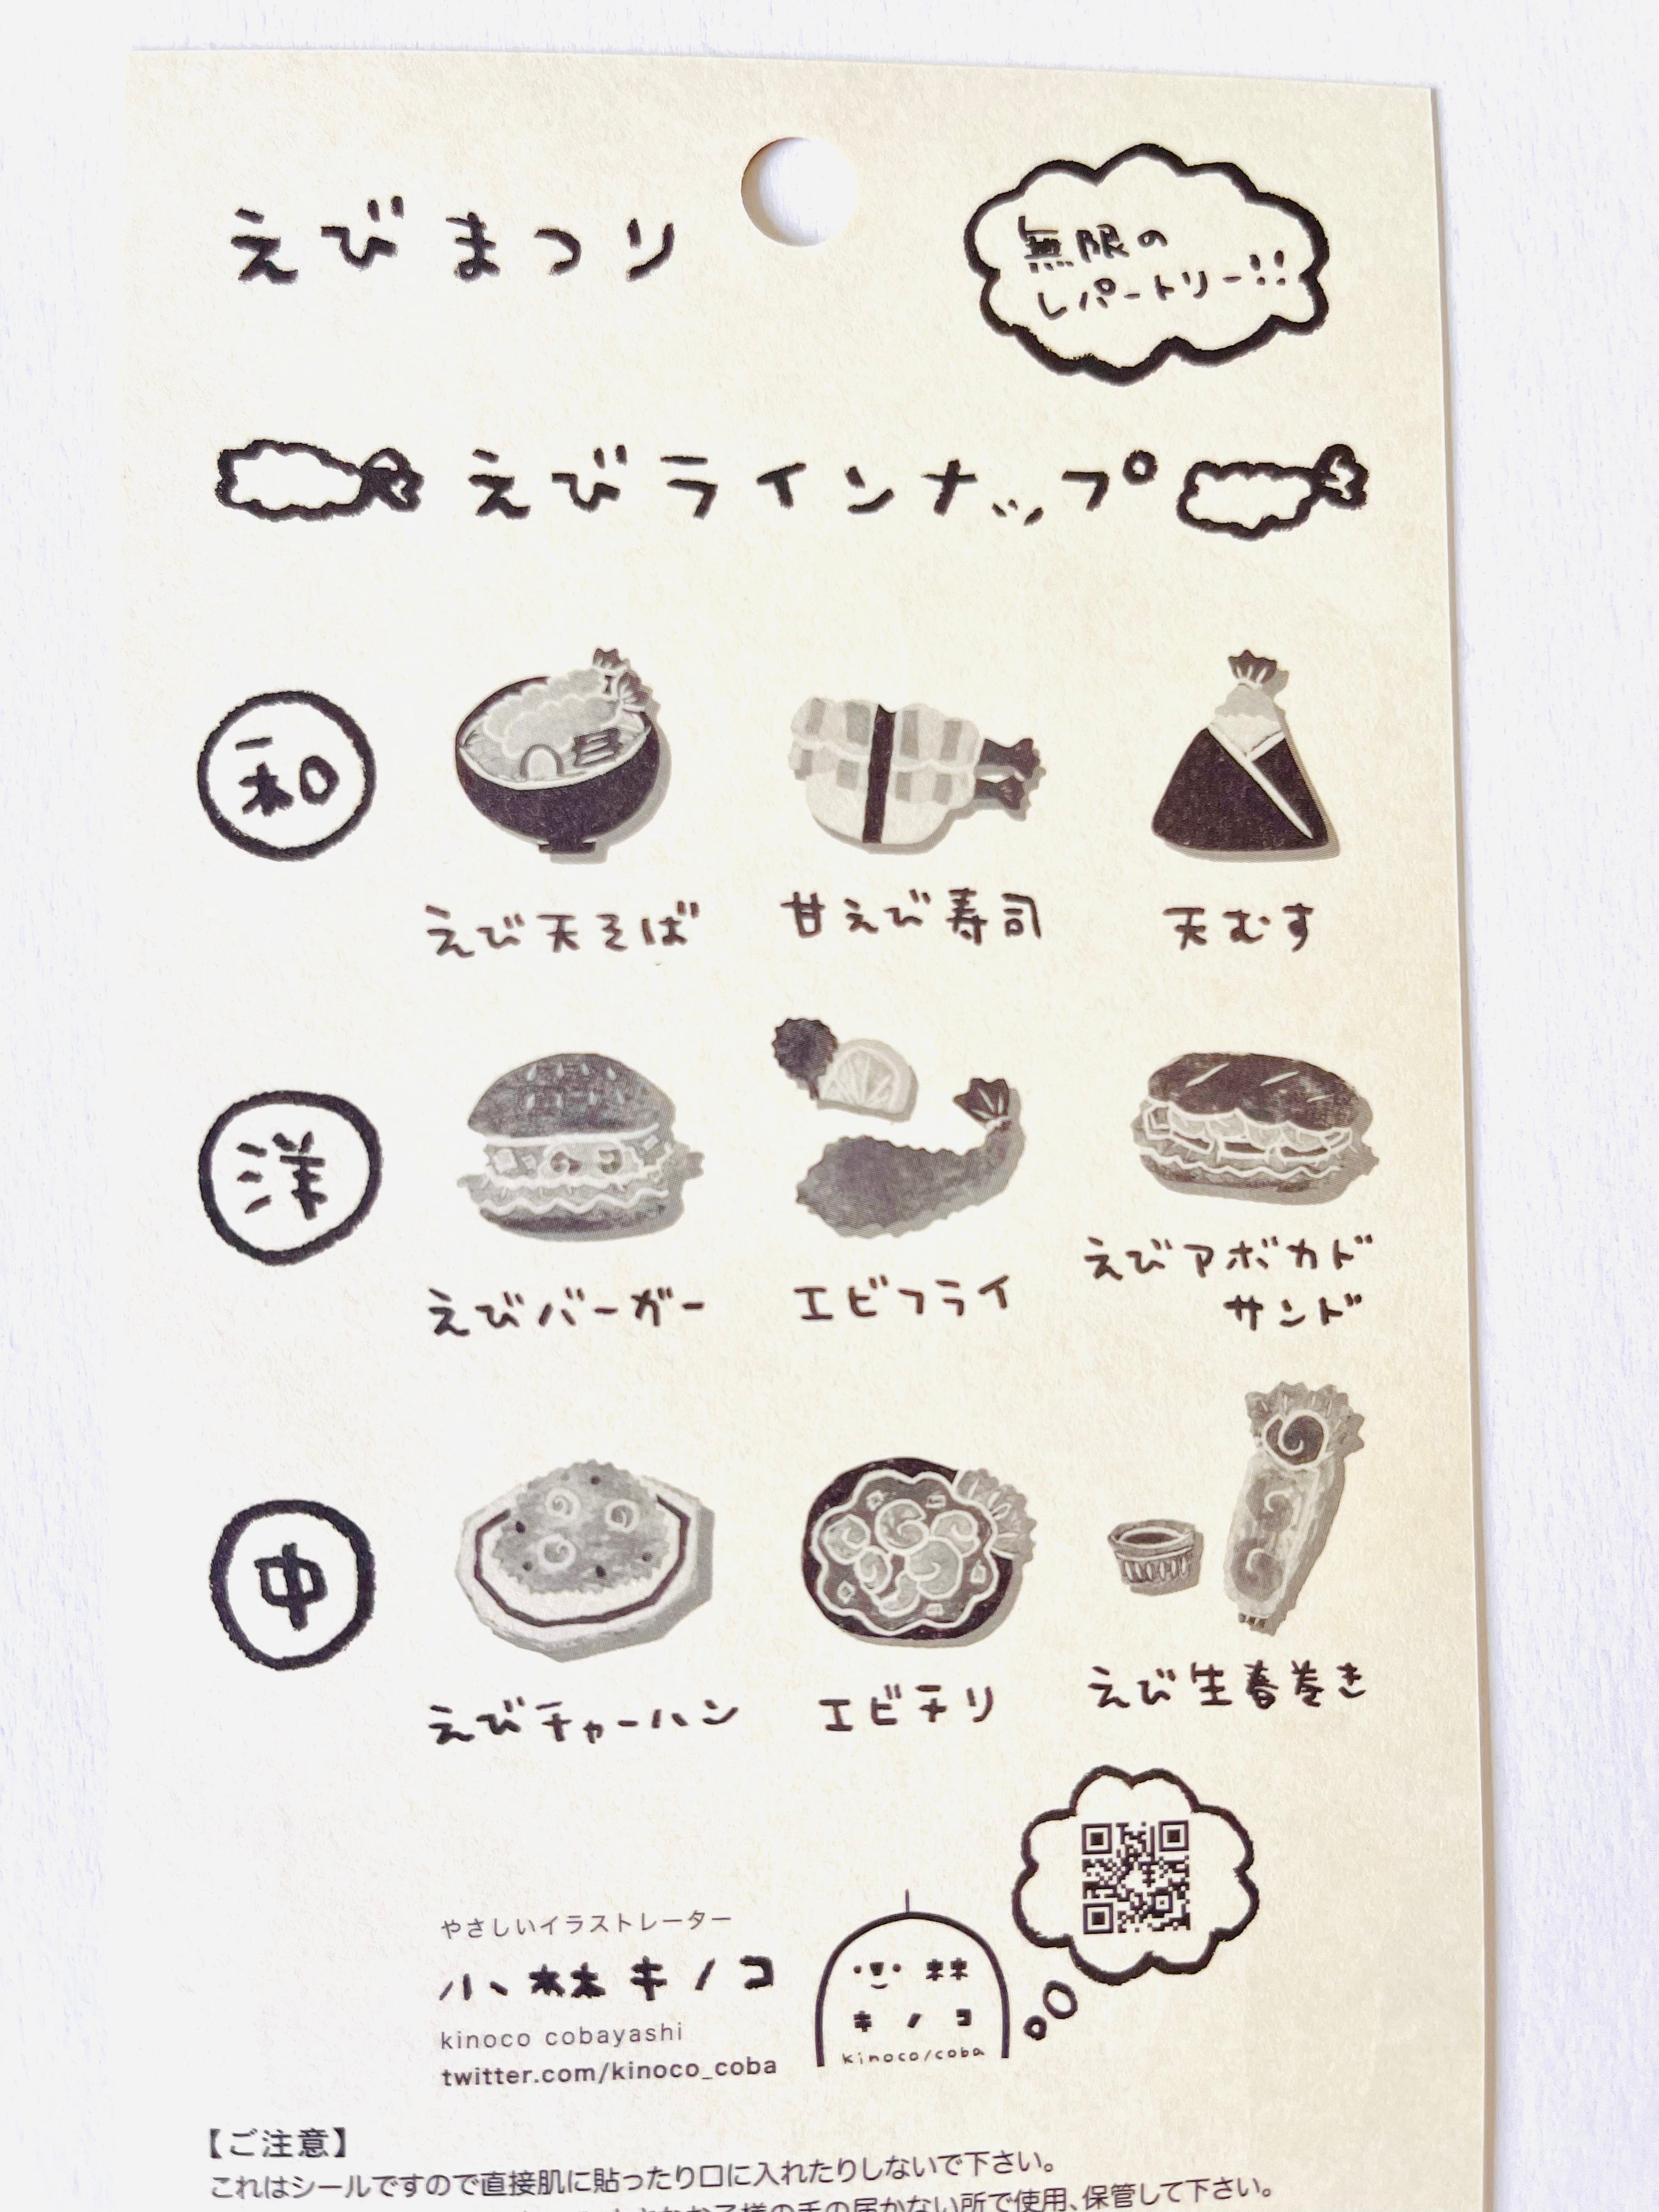 えびまつり
無限の
レパートリー!!
えびラインナップ
和
えび天そば
甘えび寿司
天むす
洋
えびバーガー
エビフライ
えびアボカド
サンド
中
えびチャーハン
エビチリ
えび生春巻き
やさしいイラストレーター
小林キノコ
kinoco cobayashi
twitter.com/kinoco_coba
林
キノコ
kinoco/coba
【ご注意】
これはシールですので直接肌に貼ったり口に入れたりしないで下さい。
お子様の手の届かない所で使用、保管して下さい。